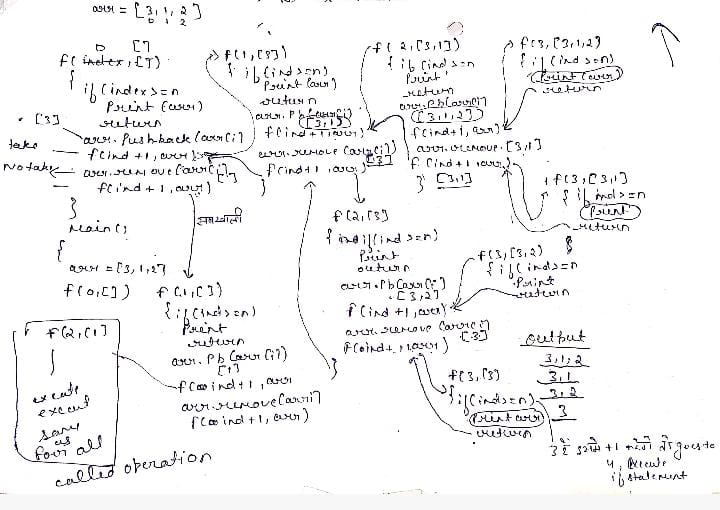 arr = [3, 1, 2]
0 1 2
0 []
f(index, [])
{ if(index >= n
Print (arr)
return
• [3]
arr. Pushback (arr(i)
take f(ind +1, arr)
No take arr. remove (arr(i)
f(ind +1, arr)
}
Main()
{
arr = [3,1,2]
f(0,[])
f(1,[3])
{ if(ind >= n)
Print (arr)
return
arr. Pb (arr(i)
[3,1]
f(ind +1, arr)
arr. remove (arr(i)
[3]
f(ind +1, arr)
f(2,[3,1])
{ if (ind >= n)
Print
return
arr. Pb (arr(i)
[3,1,2]
f(ind+1, arr)
arr. remove . [3,1]
f (ind +1, arr)
} [3,1]
f(3,[3,1,2]
{ if(ind >= n)
Print (arr)
return
f(3,[3,1]
{ if ind >= n
Print
return
}
f(2,[3]
{ if(ind >= n)
Print
return
arr. Pb (arr(i)
. [3,2]
f (ind +1, arr)
arr. remove (arr(i)
[3]
f(ind +1, arr)
}
f(3,[3,2)
{ if(ind >= n
Print
return
f(3,[3]
{ if(ind >= n)
Print arr
return
f(1,[])
{ if(ind >= n)
Print
return
arr. Pb (arr(i)
[1]
f(ind+1, arr
arr. remove (arr(i)
f(ind+1, arr)
f(2,[1]
execute
same
as
four all
called operation
output
3,1,2
3,1
3,2
3
+1
goes to
4, Execute
if statement